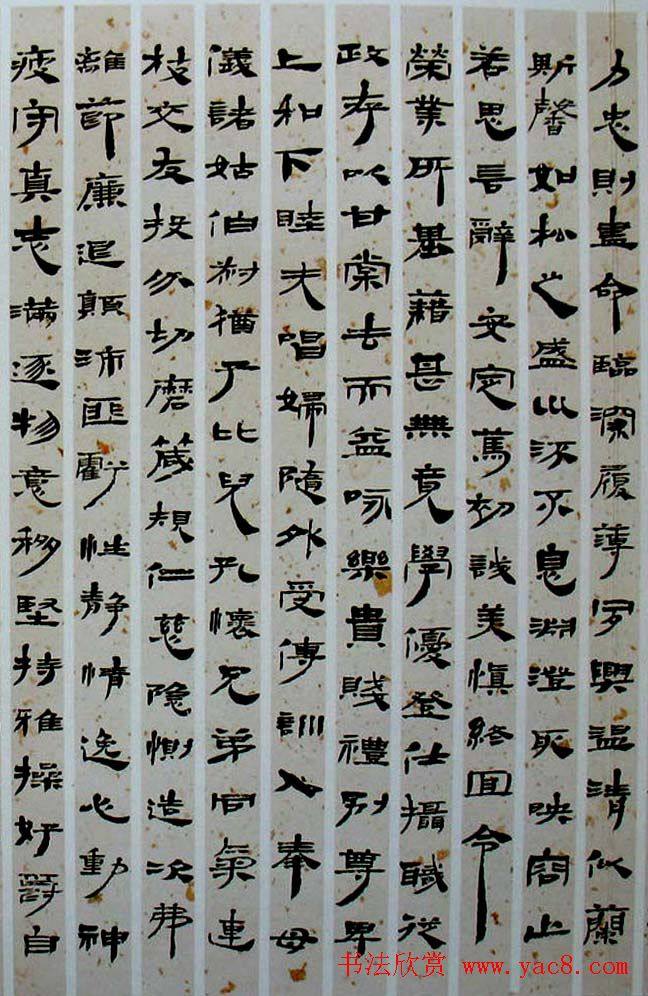 力忠則盡命臨深履薄夙興溫清似蘭
斯馨如松之盛川流不息淵澄取映容止
若思言辭安定篤初誠美慎終宜令
榮業所基藉甚無竟學優登仕攝職從
政存以甘棠去而益詠樂貴賤禮別尊卑
上和下睦夫唱婦隨外受傅訓入奉母
儀諸姑伯叔猶子比兒孔懷兄弟同氣連
枝交友投分切磨箴規仁慈隱惻造次弗
離節廉退顛沛匪虧性靜情逸心動神
疲守真志滿逐物意移堅持雅操好爵自
书法欣赏 www.yac8.com